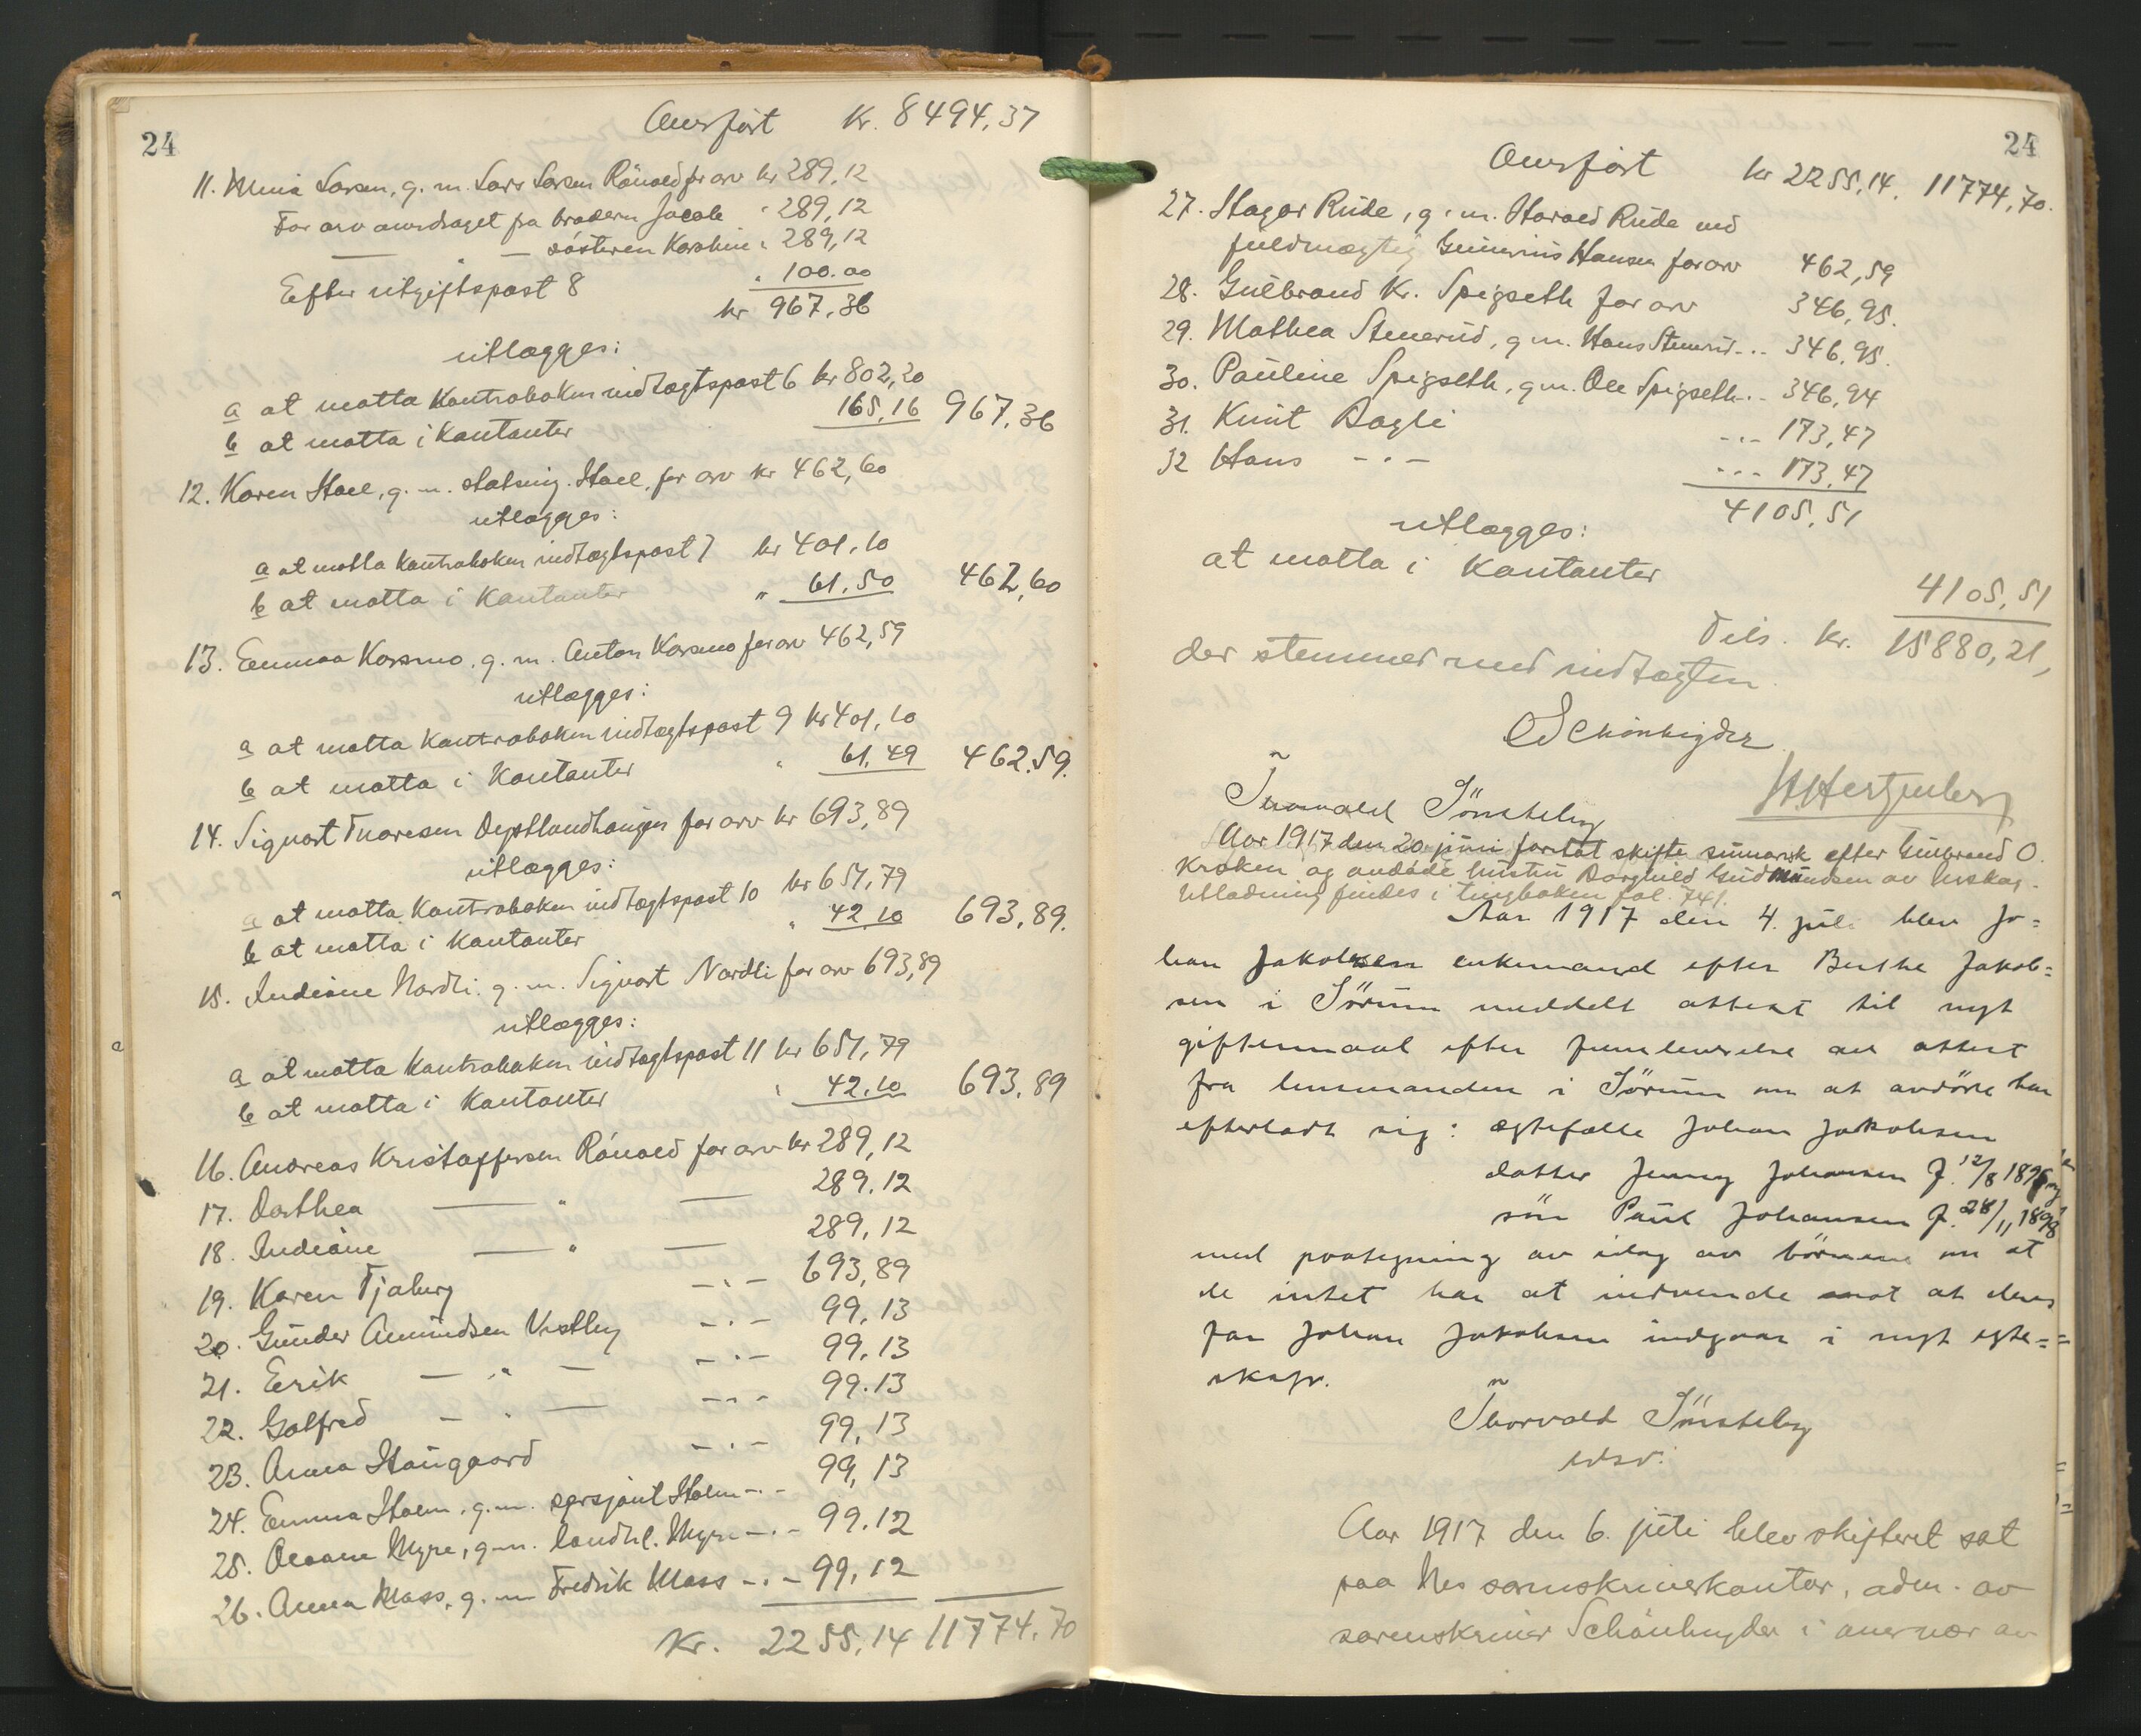 24
Overført Kr. 8494,37
11. Mina Larsen, g. m. Lars Larsen Rånåsd for arv kr 289,12
For arv overdraget fra broderen Jacob " 289,12
— " — søsteren Karoline " 289,12
Efter utgiftspost 8 " 100.00
kr 967,36
utlægges:
a at motta Kontraboken indtægtspost 6 kr 802,20
b at motta i Kontanter 165,16 967,36
12. Karen Hoel, g. m. Hoel, for arv kr 462,60
utlægges:
a at motta Kontraboken indtægtspost 7 kr 401,10
b at motta i Kontanter " 61,50 462,60
13. Emma Korsmo, g. m. Anton Korsmo for arv 462,59
utlægges:
a at motta Kontraboken indtægtspost 9 kr 401,10
b at motta i Kontanter " 61,49 462.59.
14. Sigvart Thoresen for arv kr 693,89
utlægges:
a at motta Kontraboken indtægtspost 10 kr 651,79
b at motta i Kontanter " 42.10 693,89.
15. Indiane Nordli g. m. Sigvart Nordli for arv 693,89
utlægges:
a at motta Kontraboken indtægtspost 11 kr 651,79
b at motta i Kontanter " 42.10 693,89
16. Andreas Kristoffersen Rånåsd for arv kr 289,12
17. Dorthea — " — 289.12
18. Indiane — " — 289,12
19. Karen Tjaberg — " — 693,89
20. Gunder Amundsen Vestby — " — 99,13
21. Erik — " — — " — 99,13
22. Golfred — " — — " — 99.13
23. Anna Haugaard — " — 99,13
24. Emma Holm, g. m. sersjant Holm — " — 99,13
25. Oleane Myre, g. m. landhl. Myre — " — 99.12
26. Anna Moss, g. m Fredrik Moss — " — 99,12
Kr. 2255,14 11774,70
24
Overført kr 2255,14. 11774,70.
27. Hagar Rude, g. m. Harald Rude ved
fuldmægtig Gunerius Hansen for arv 462,59
28. Gulbrand Kr. Spigseth for arv 346,95.
29. Mathea Stenerud, g m. Hans Stenerud - " - 346,95.
30. Pauline Spigseth, g m. Ole Spigseth - " - 346,94
31. Knut Bagli - " - 173,47
32 Hans - " - - " - 173,47
4105,51
utlægges:
at motta i Kontanter 4105,51
Tils. kr. 15880,21,
der stemmer med indtægten.
Schönheyder
Thorvald Sönsteby
Aar 1917 den 20 juni foretat skifte efter Gulbrand O.
Kroken og avdøde hustru Borghild Gudmundsen av
Utlodning findes i tingboken fol. 741.
Aar 1917 den 4. juli blev Jo=
han Jakobsen enkemand efter Berthe Jakob=
sen i Sörum meddelt attest til nyt
giftermaal efter fremleverelse av attest
fra lensmanden i Sörum om at avdöde har
efterladt sig: ægtefælle Johan Jakobsen
datter Jenny Johansen f. 12/8 1896
sön Paul Johansen f. 28/11 1898
med paategning av idag av börnene om at
de intet har at indvende mot at deres
far Johan Jakobsen indgaar i nyt egte=
skap.
Thorvald Sönsteby
edsv.
Aar 1917 den 6. juli blev skifteret sat
paa Nes sorenskriverkontor, adm. av
sorenskriver Schönheyder i overvær av